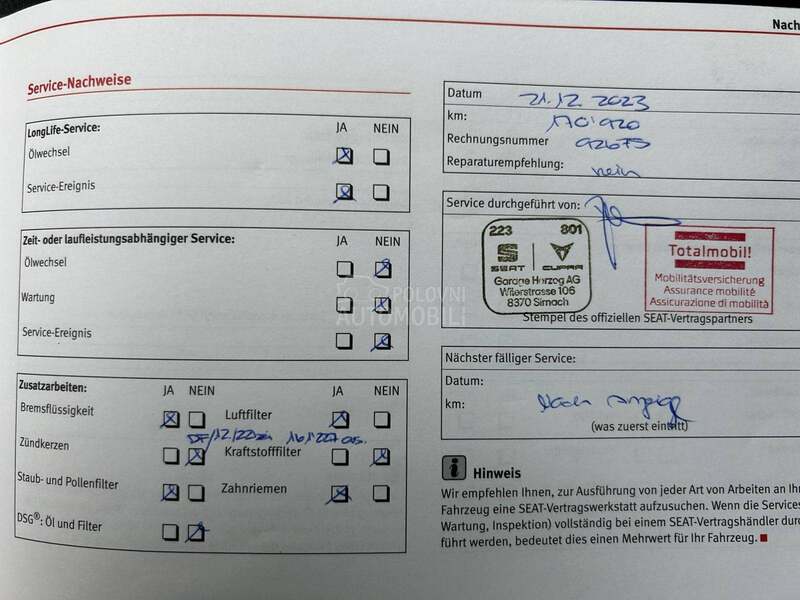 Nach
Service-Nachweise
LongLife-Service:
JA NEIN
Ölwechsel
Service-Ereignis
Zeit- oder laufleistungsabhängiger Service:
JA NEIN
Ölwechsel
Wartung
Service-Ereignis
Zusatzarbeiten:
JA NEIN
JA NEIN
Bremsflüssigkeit
Luftfilter
Zündkerzen
Kraftstofffilter
Staub- und Pollenfilter
Zahnriemen
DSG®: Öl und Filter
POLOVNI
AUTOMOBILI
Datum 21.12.2023
km: 170'020
Rechnungsnummer
Reparaturempfehlung: nein
Service durchgeführt von:
223 801
SEAT CUPRA
Garage Herzog AG
Wilerstrasse 106
8370 Sirnach
Totalmobil!
Mobilitätsversicherung
Assurance mobilité
Assicurazione di mobilità
Stempel des offiziellen SEAT-Vertragspartners
Nächster fälliger Service:
Datum:
km: Nach Anzeige
(was zuerst eintritt)
Hinweis
Wir empfehlen Ihnen, zur Ausführung von jeder Art von Arbeiten an Ih
Fahrzeug eine SEAT-Vertragswerkstatt aufzusuchen. Wenn die Services
Wartung, Inspektion) vollständig bei einem SEAT-Vertragshändler durc
führt werden, bedeutet dies einen Mehrwert für Ihr Fahrzeug.